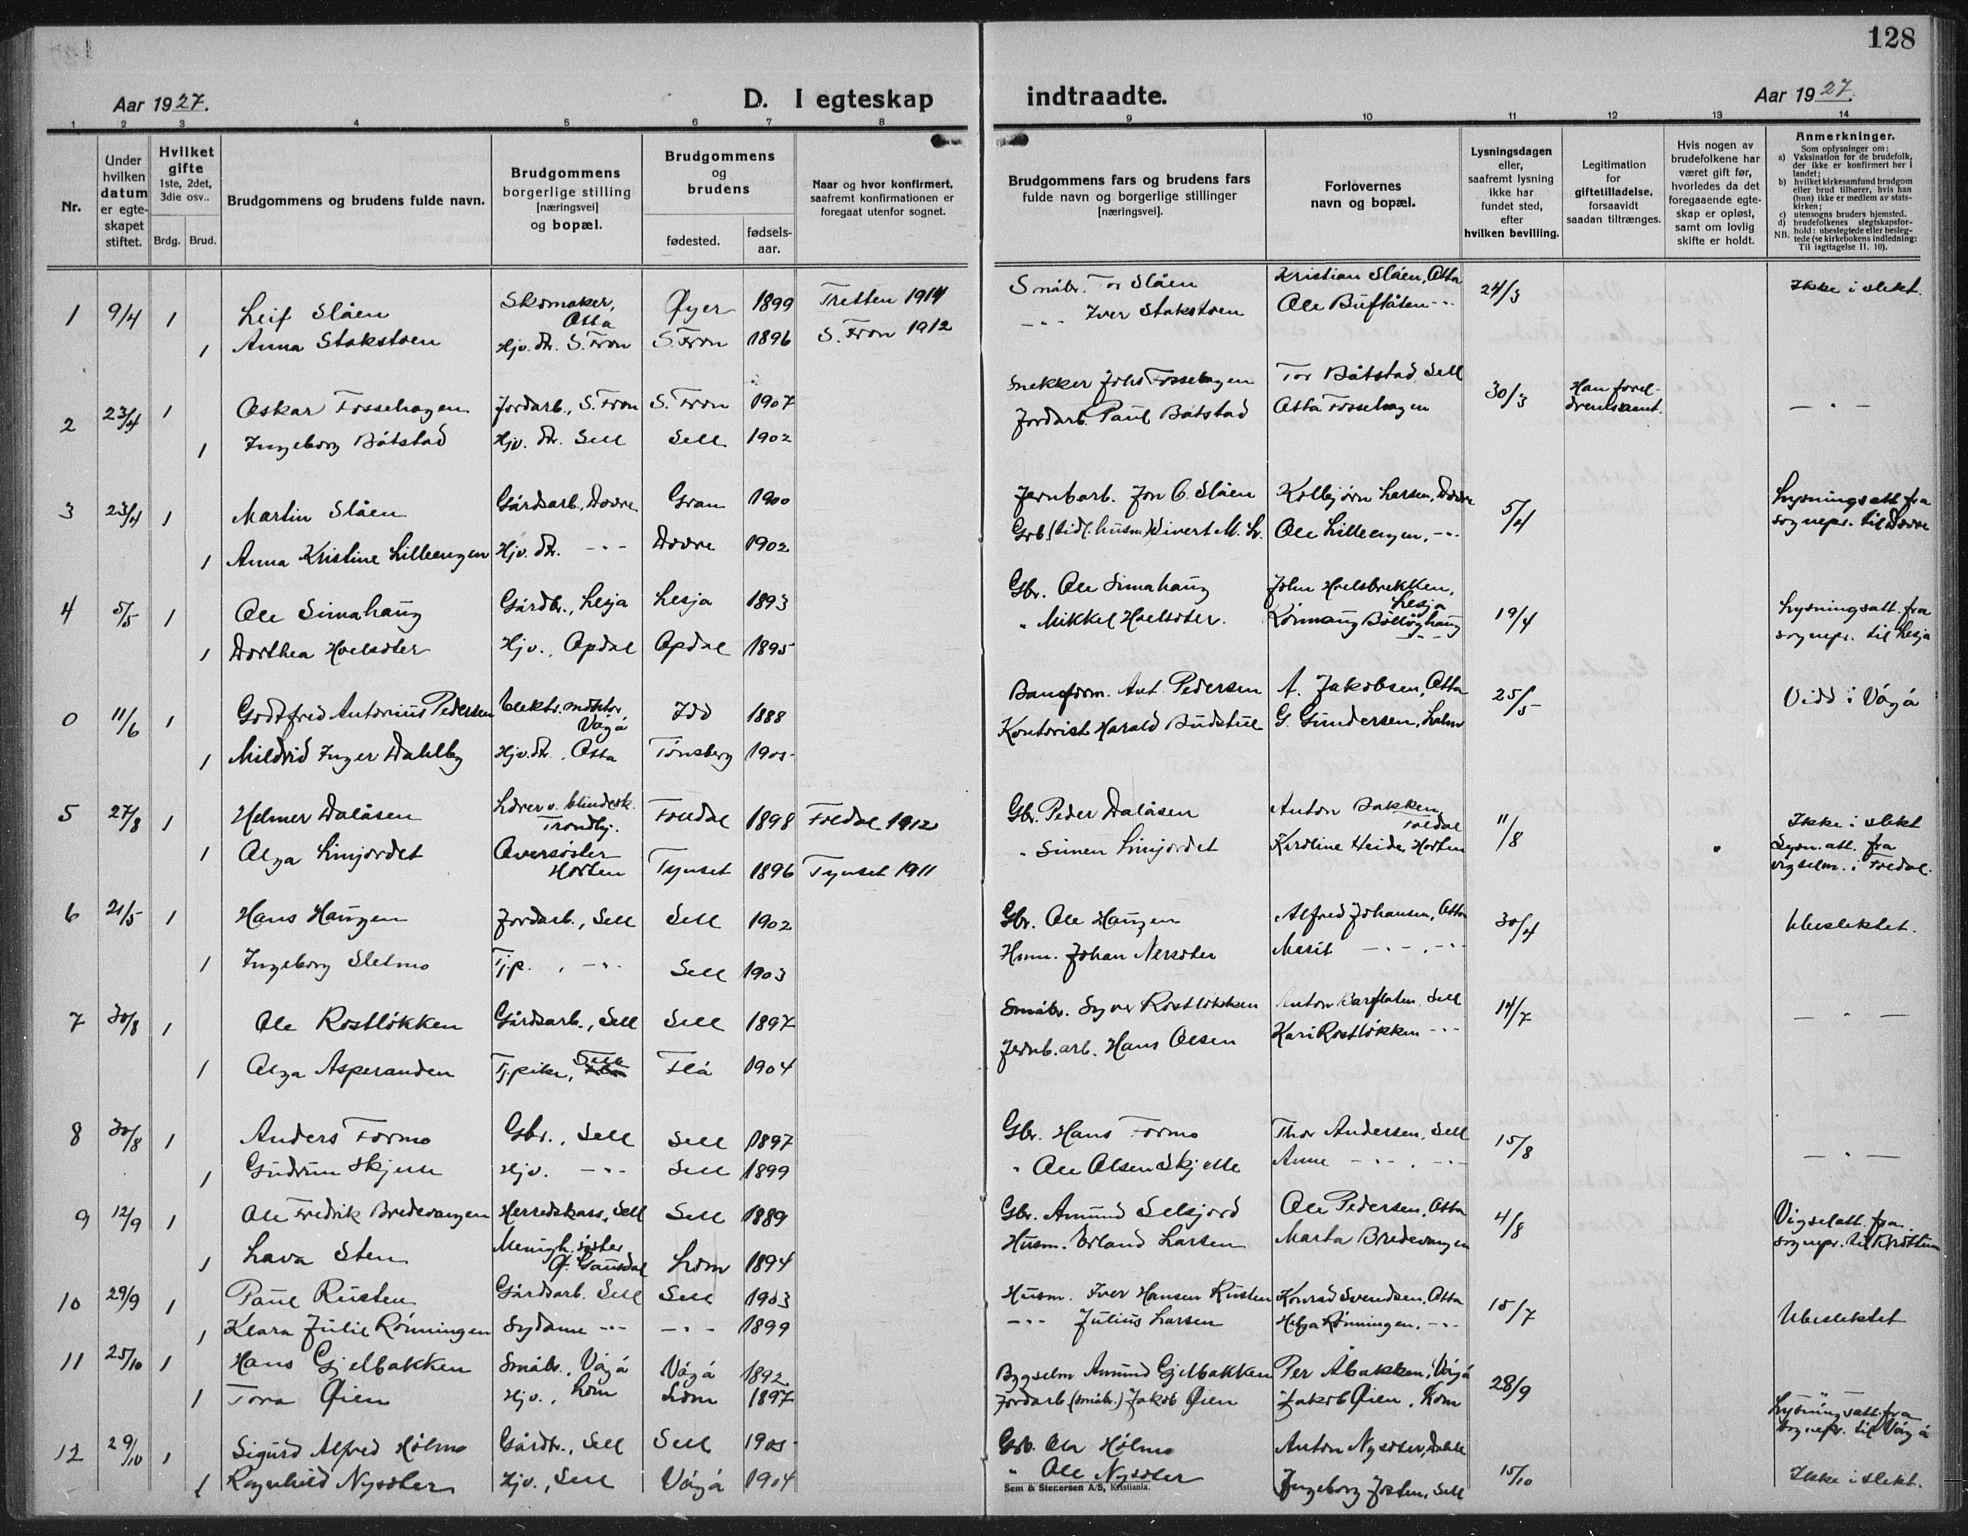 128
Aar 1927.
D. I egteskap
indtraadte.
Aar 1927.
1 2 3 4 5 6 7 8 9 10 11 12 13 14
Nr.
Under hvilken datum er egteskapet stiftet.
Hvilket gifte
1ste, 2det, 3die osv..
Brdg. Brud.
Brudgommens og brudens fulde navn.
Brudgommens borgerlige stilling [næringsvei] og bopæl.
Brudgommens og brudens
fødested.
fødselsaar.
Naar og hvor konfirmert, saafremt konfirmationen er foregaat utenfor sognet.
Brudgommens fars og brudens fars fulde navn og borgerlige stillinger [næringsvei].
Forlovernes navn og bopæl.
Lysningsdagen eller, saafremt lysning ikke har fundet sted, efter hvilken bevilling.
Legitimation for giftetilladelse, forsaavidt saadan tiltrænges.
Hvis nogen av brudefolkene har været gift før, hvorledes da det foregaaende egteskap er opløst, samt om lovlig skifte er holdt.
Anmerkninger.
Som oplysninger om:
a) Vaksination for de brudefolk, der ikke er konfirmert her i landet;
b) hvilket kirkesamfund brudgom eller brud tilhører, hvis han (hun) ikke er medlem av statskirken;
c) utensogns bruders hjemsted.
d) brudefolkenes slegtskapsforhold: ubeslegtede eller beslegtede (se kirkebokens indledning:
NB. Til Iagttagelse II. 10).
1 9/4 1 Leif Slåen Skomaker, Otta Øyer 1899 Tretten 1914 Småbr. Tor Slåen Kristian Slåen, Otta 24/3 Ikke i slekt.
1 Anna Stokstoen Hjv. dr. S. Fron S. Fron 1896 S. Fron 1912 -"- Iver Stokstoen Ole Buflåten -"-
2 23/4 1 Oskar Fossehagen Jordarb., S. Fron S. Fron 1907 Snekker Johs Fossehagen Tor Båtstad, Sell 30/3 Han foreldresamt. - " -
1 Ingeborg Båtstad Hjv. dr. Sell Sell 1902 Jordarb. Paul Båtstad Otta Fossehagen
3 23/4 1 Martin Slåen Gårdsarb., Dovre Gran 1900 Jernbarb. Jon O. Slåen Kolbjørn Larsen, Dovre 5/4 Lysningsatt fra sognepr. til Dovre
1 Anna Kristine Lilleengen Hjv. dr. -"- Dovre 1902 Grb. (tidl. husm.) Sivert M. L. Ole Lilleengen, -"-
4 5/5 1 Ole Simahaug Gårdbr., Lesja Lesja 1893 Gbr. Ole Simahaug John Hoelsbrekken, Lesja 19/4 Lysningsatt. fra sognepr. til Lesja
1 Dorthea Hoelsæter Hjv., Opdal Opdal 1895 " Mikkel Hoelsæter.
0 11/6 1 Godtfred Antonius Pedersen Elektr. montør Vågå Idd 1888 Baneform. Ant. Pedersen A. Jakobsen, Otta 25/5 Vidd i Vågå
1 Mildrid Inger Dahlby Hjv. dr., Otta Tønsberg 1905 Kontorist Harald Budstul G. Gundersen, Lalm
5 27/8 1 Helmer Dalåsen Lærer v. blindesk. Trondhj. Folldal 1898 Foldal 1912 Gbr. Peder Dalåsen Anton Bakken, Foldal 11/8 Ikke i slekt
1 Olga Linjordet Oversøster Horten Tynset 1896 Tynset 1911 " Simen Linjordet Karoline Heide, Horten Lysn. att. fra vigselm. i Foldal.
6 21/5 1 Hans Haugen Jordarb., Sell Sell 1902 Gbr. Ole Haugen Alfred Johansen, Otta 30/4 Ubeslektet.
1 Ingeborg Sletmo Tj.p., -"- Sell 1903 Hsm. Johan Nersæter Marit -"-, -"-
7 30/8 1 Ole Rostløkken Gårdsarb., Sell Sell 1897 Småbr. Syver Rostløkken Anton Bergflaten, Sell 14/7 - " -
1 Olga Asperanden Tj.pike, Sell Flå 1904 Jernb.arb. Hans Olsen Kari Rostløkken -"-
8 30/8 1 Anders Formo Gbr., Sell Sell 1897 Gbr. Hans Formo Thor Andersen, Sell 15/8 - " -
1 Gudrun Skjelle Hjv. -"- Sell 1899 " Ole Olsen Skjelle Anne -"-, -"-
9 12/9 1 Ole Fredrik Bredevangen Herredskass., Sell Sell 1889 Gbr. Amund Selsjord Ole Pedersen, Otta 4/8 Vigselatt. fra sognepr. til Brøttum
1 Lava Sten Menigh.søster Ø. Gausdal Lom 1894 Husm. Erland Larsen Marta Bredevangen
10 29/9 1 Paul Rusten Gårdsarb. Sell Sell 1903 Husm. Iver Hansen Rusten Konrad Svendsen, Otta 15/7 Ubeslektet
1 Klara Julie Rønningen Sydame -"- -"- 1899 -"- Julius Larsen Helga Rønningen, -"-
11 25/10 1 Hans Gjelbakken Småbr., Vågå Vågå 1892 Bygselm Amund Gjelbakken Per Åbakken, Vågå 28/9 Lysningsatt. fra sognepr. til Vågå
1 Tora Øien Hjv., Lom Lom 1897 Jordarb. (småbr.) Jakob Øien Jakob Øien, Lom
12 29/10 1 Sigurd Alfred Holmo Gårdbr., Sell Sell 1905 Gbr. Ola Holmo Anton Nysæter, 15/10 Ikke i slekt.
1 Ragnhild Nysæter Hjv., Sell Vågå 1904 " Ole Nysæter Ingeborg Josten, Sell
Sem & Stenersen A/S, Kristiania.